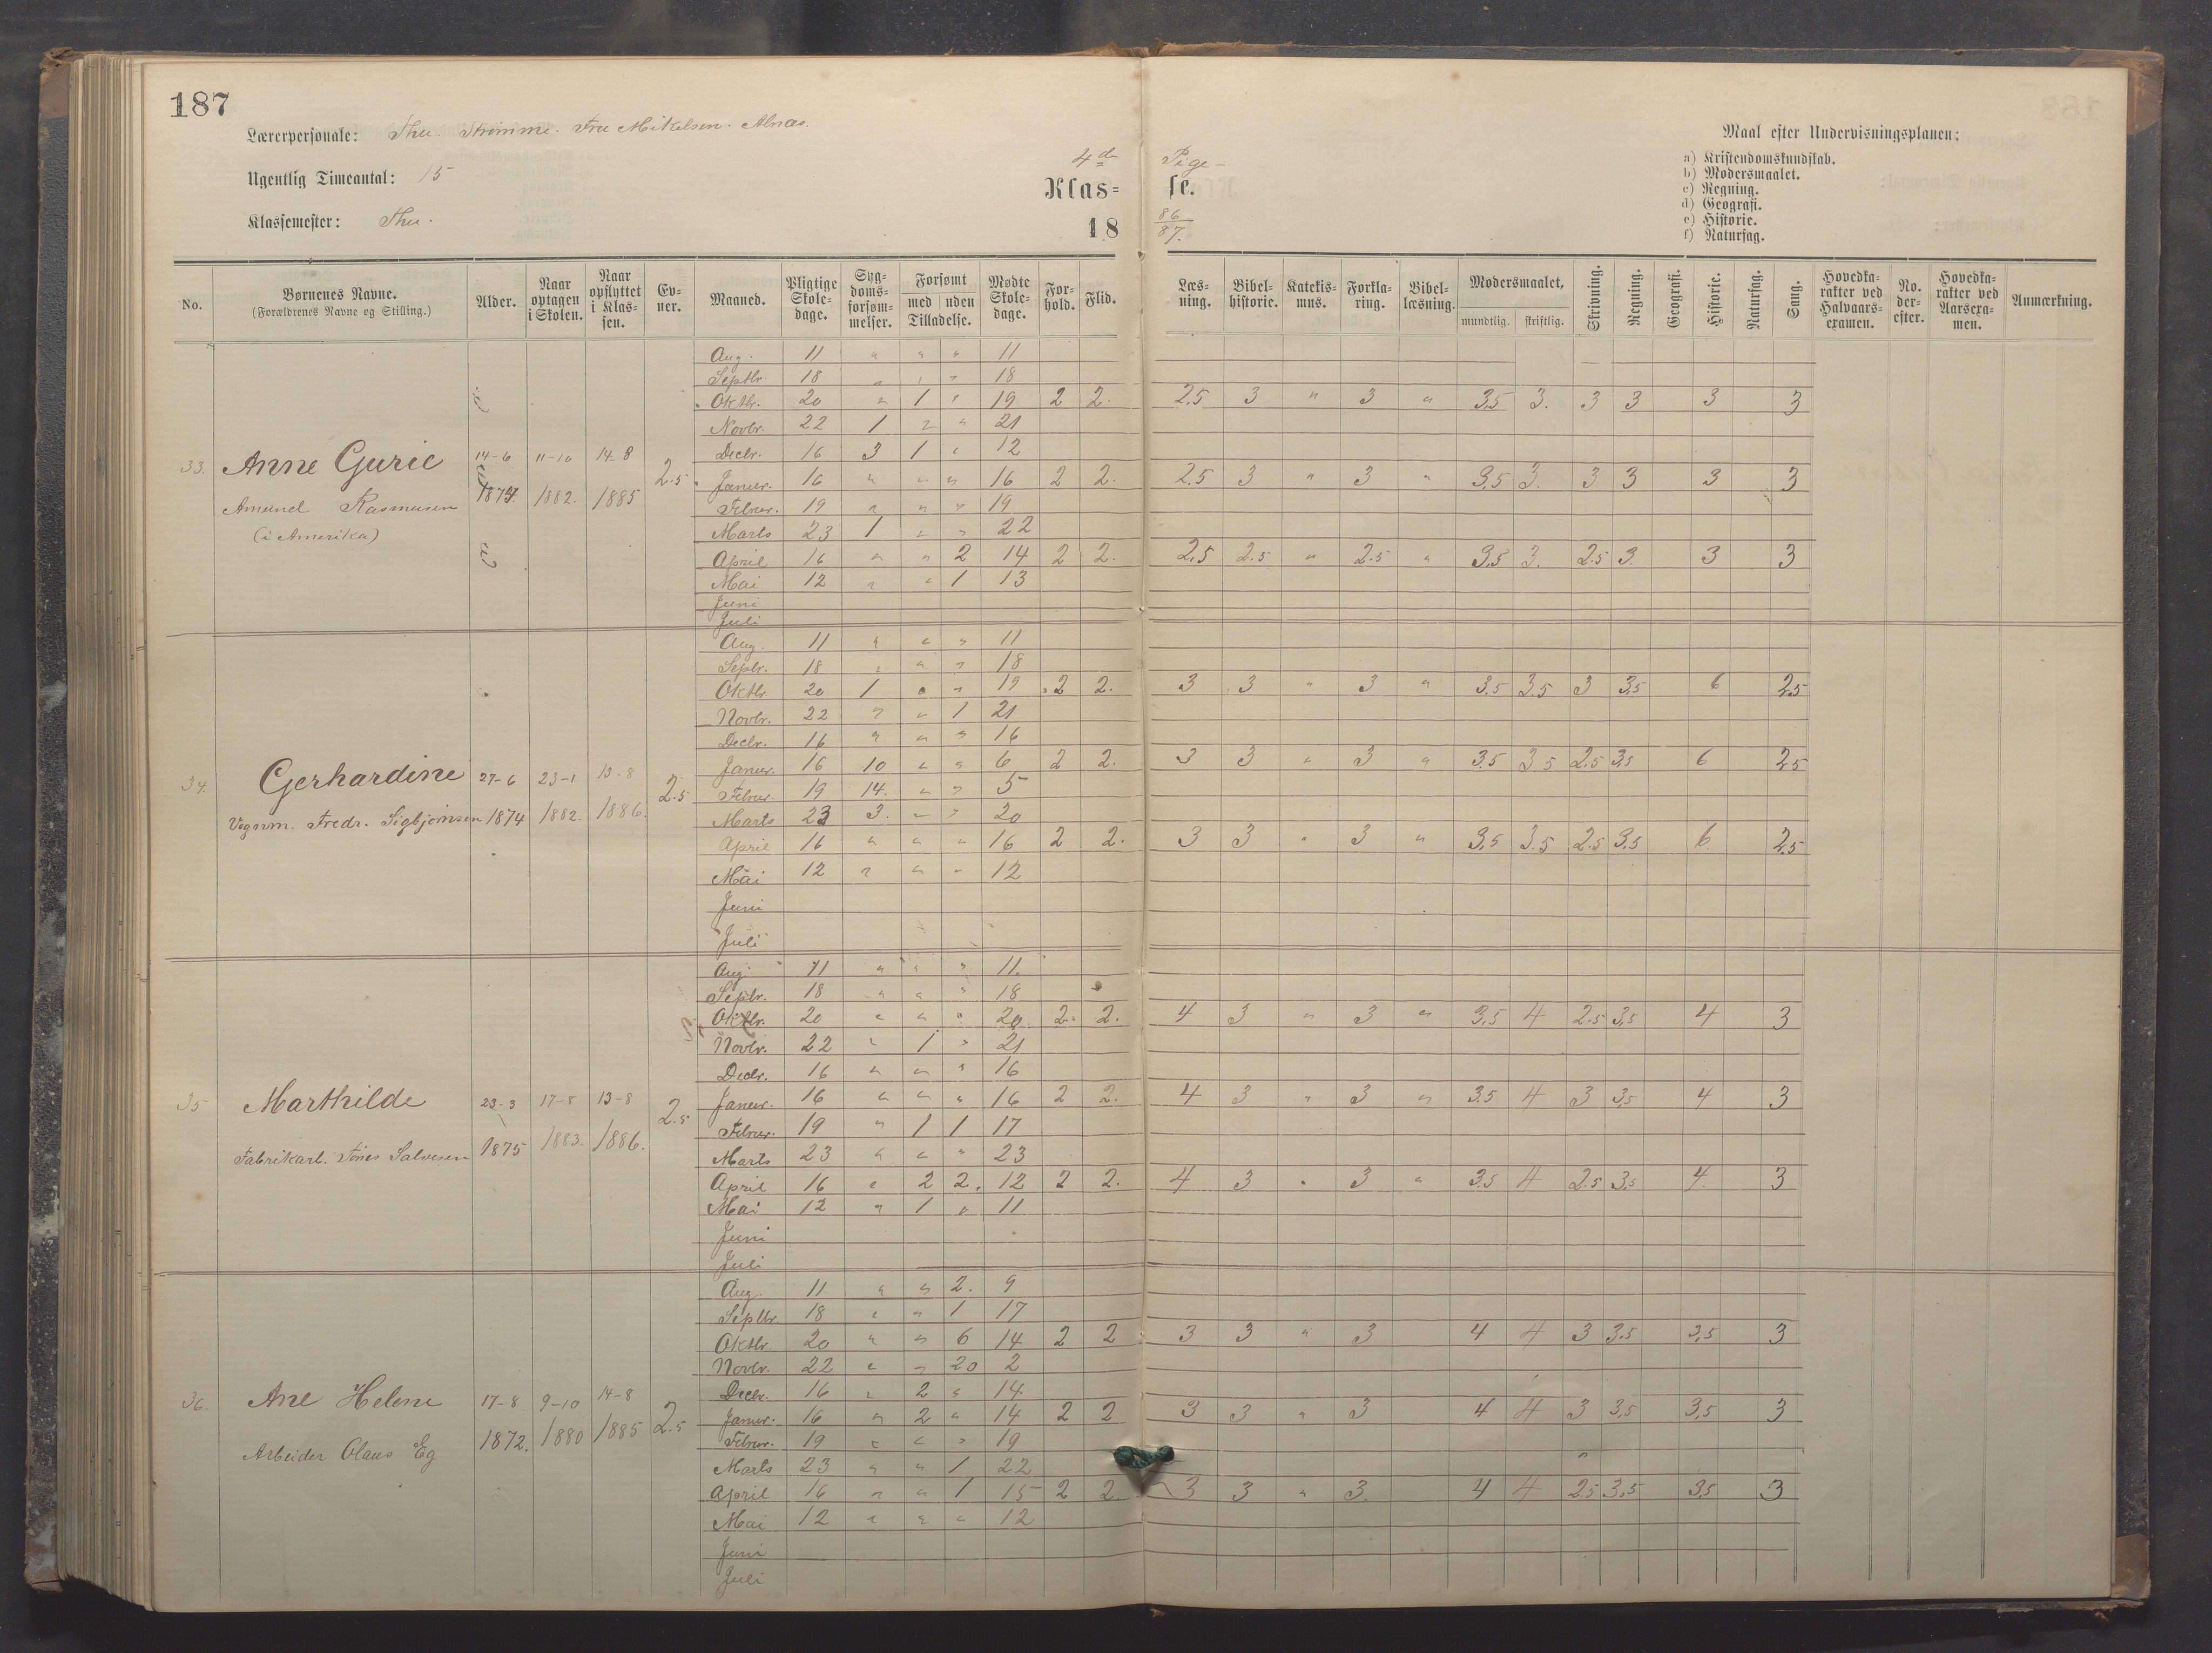 187
Lærerpersonale: Thu. Strømme. Fru Mikelsen. Alnæs.
Ugentlig Timeantal: 15
Klassemester: Thu.
4de Pige-
Klas= se.
18 86/87.
Maal efter Undervisningsplanen:
a) Kristendomskundskab.
b) Modersmaalet.
c) Regning.
d) Geografi.
e) Historie.
f) Naturfag.
No. Børnenes Navne. (Forældrenes Navne og Stilling.) Alder. Naar optagen i Skolen. Naar opflyttet i Klas-sen. Ev-ner. Maaned. Pligtige Skole-dage. Syg-doms-forsøm-melser. Forsømt med uden Tilladelse. Mødte Skole-dage. For-hold. Flid. Læs-ning. Bibel-historie. Katekis-mus. Forkla-ring. Bibel-læsning. Modersmaalet, mundtlig. skriftlig. Skrivning. Regning. Geografi. Historie. Naturfag. Sang. Hovedka-rakter ved Halvaars-examen. No. der-efter. Hovedka-rakter ved Aarsexa-men. Anmærkning.
33. Anne Gurie 14-6 1874. 11-10 1882. 14-8 1885 2.5
Amund Rasmusen
(i Amerika)
Aug. 11 " " " 11
Septbr. 18 " " " 18
Oktbr. 20 " 1 " 19 2 2. 2.5 3 " 3 " 3.5 3. 3 3 3 3
Novbr. 22 1 " " 21
Decbr. 16 3 1 " 12
Januar. 16 " " " 16 2 2. 2.5 3 " 3 " 3.5 3. 3 3 3 3
Februar. 19 " " " 19
Marts 23 1 " " 22
April 16 " " 2 14 2 2. 2.5 2.5 " 2.5 " 3.5 3. 2.5 3. 3 3
Mai 12 " " 1 13
Juni
Juli
34. Gerhardine 27-6 1874 23-1 1882. 13-8 1886. 2.5
Vognm. Fredr. Sigbjørnsen
Aug. 11 " " " 11
Septr. 18 " " " 18
Oktbr. 20 1 " " 19 2 2. 3 3 " 3 " 3.5 3.5 3 3.5 6 2.5
Novbr. 22 " " 1 21
Decbr. 16 " " " 16
Januar. 16 10 " " 6 2 2. 3 3 " 3 " 3.5 3.5 2.5 3.5 6 2.5
Februar. 19 14. " " 5
Marts 23 3. " " 20
April 16 " " " 16 2 2. 3 3 " 3 " 3.5 3.5 2.5 3.5 6 2.5
Mai 12 " " " 12
Juni
Juli
35 Marthilde 23-3 1875 17-8 1883. 13-8 1886. 2.5
Fabrikarb. Tønes Salvesen
Aug. 11 " " " 11.
Septbr. 18 " " " 18
Oktbr. 20 " " " 20 2. 2. 4 3 " 3 " 3.5 4 2.5 3.5 4 3
Novbr. 22 " 1 " 21
Decbr. 16 " " " 16
Januar. 16 " " " 16 2 2. 4 3 " 3 " 3.5 4 3 3.5 4 3
Februar. 19 " 1 1 17
Marts 23 " " " 23
April 16 " 2 2. 12 2 2. 4 3 " 3 " 3.5 4 2.5 3.5 4. 3
Mai 12 " 1 " 11
Juni
Juli
36. Ane Helene 17-8 1872. 9-10 1880 14-8 1885 2.5
Arbeider Olaus Eg
Aug. 11 " " 2. 9
Septbr. 18 " " 1 17
Oktbr. 20 " " 6 14 2 2 3 3 " 3 4 4 3 3.5 3.5 3
Novbr. 22 " " 20 2
Decbr. 16 " 2 " 14
Januar. 16 " 2 " 14 2 2 3 3 " 3 4 4 3 3.5 3.5 3
Februar. 19 " " " 19
Marts 23 " " 1 22
April 16 " " 1 15 2 2. 3 3 " 3. 4 4 2.5 3.5 3.5 3
Mai 12 " " " 12
Juni
Juli